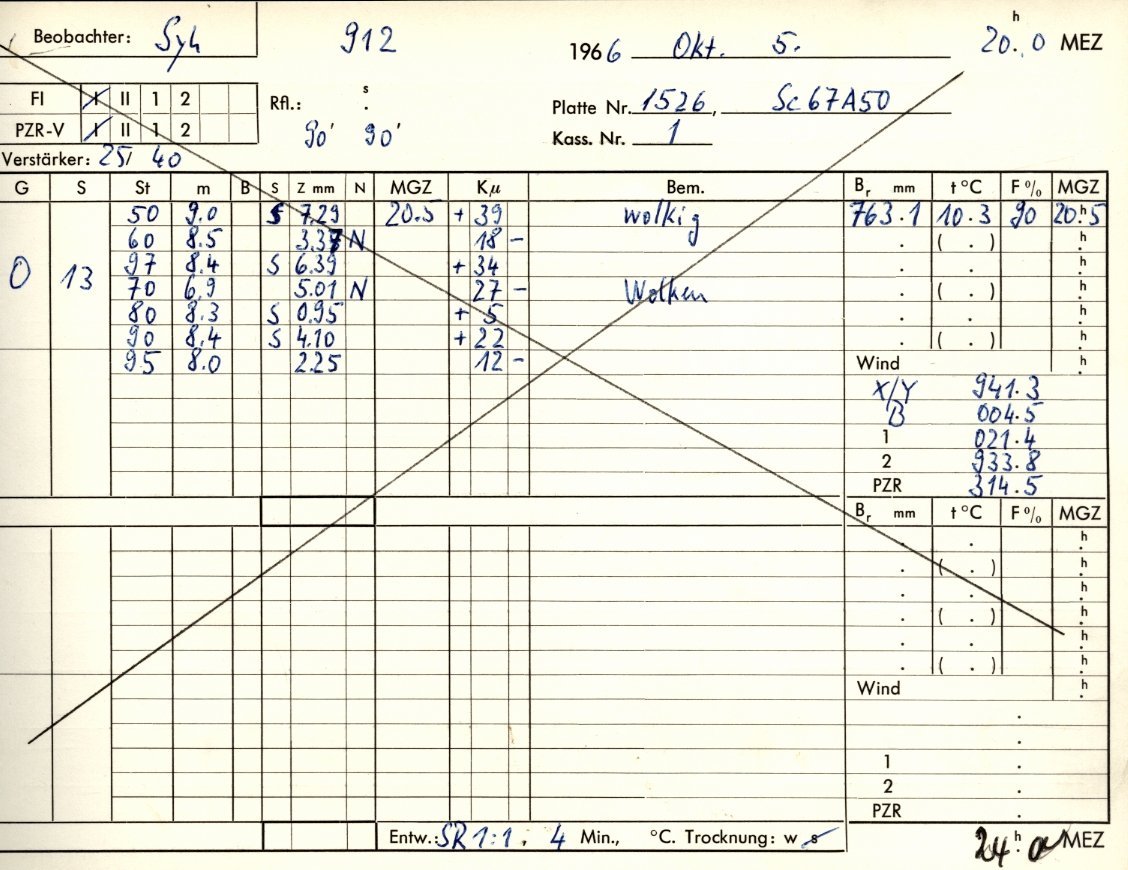 Beobachter: Syh 912 1966 Okt. 5. 20.ʰ0 MEZ
FI I II 1 2 Rfl.: s . Platte Nr. 1526, Sc67A50
PZR-V I II 1 2 90' 90' Kass. Nr. 1
Verstärker: 25/ 40
G S St m B S Z mm N MGZ Kμ Bem. Br mm t °C F % MGZ
50 9.0 S 7.29 20.5 + 39 wolkig 763.1 10.3 90 20.ʰ5
60 8.5 3.37 N 18 - . ( . ) .ʰ
0 13 97 8.4 S 6.39 + 34 . . .ʰ
70 6.9 5.01 N 27 - Wolken . ( . ) .ʰ
80 8.3 S 0.95 + 5 . . .ʰ
90 8.4 S 4.10 + 22 . ( . ) .ʰ
95 8.0 2.25 12 - Wind .ʰ
X/Y 941.3
B 004.5
1 021.4
2 933.8
PZR 314.5
Br mm t °C F % MGZ
. . .ʰ
. ( . ) .ʰ
. . .ʰ
. ( . ) .ʰ
. . .ʰ
. ( . ) .ʰ
Wind .ʰ
.
.
1 .
2 .
PZR .
Entw.: SR 1:1. 4 Min., °C. Trocknung: w s 24.ʰ0 MEZ